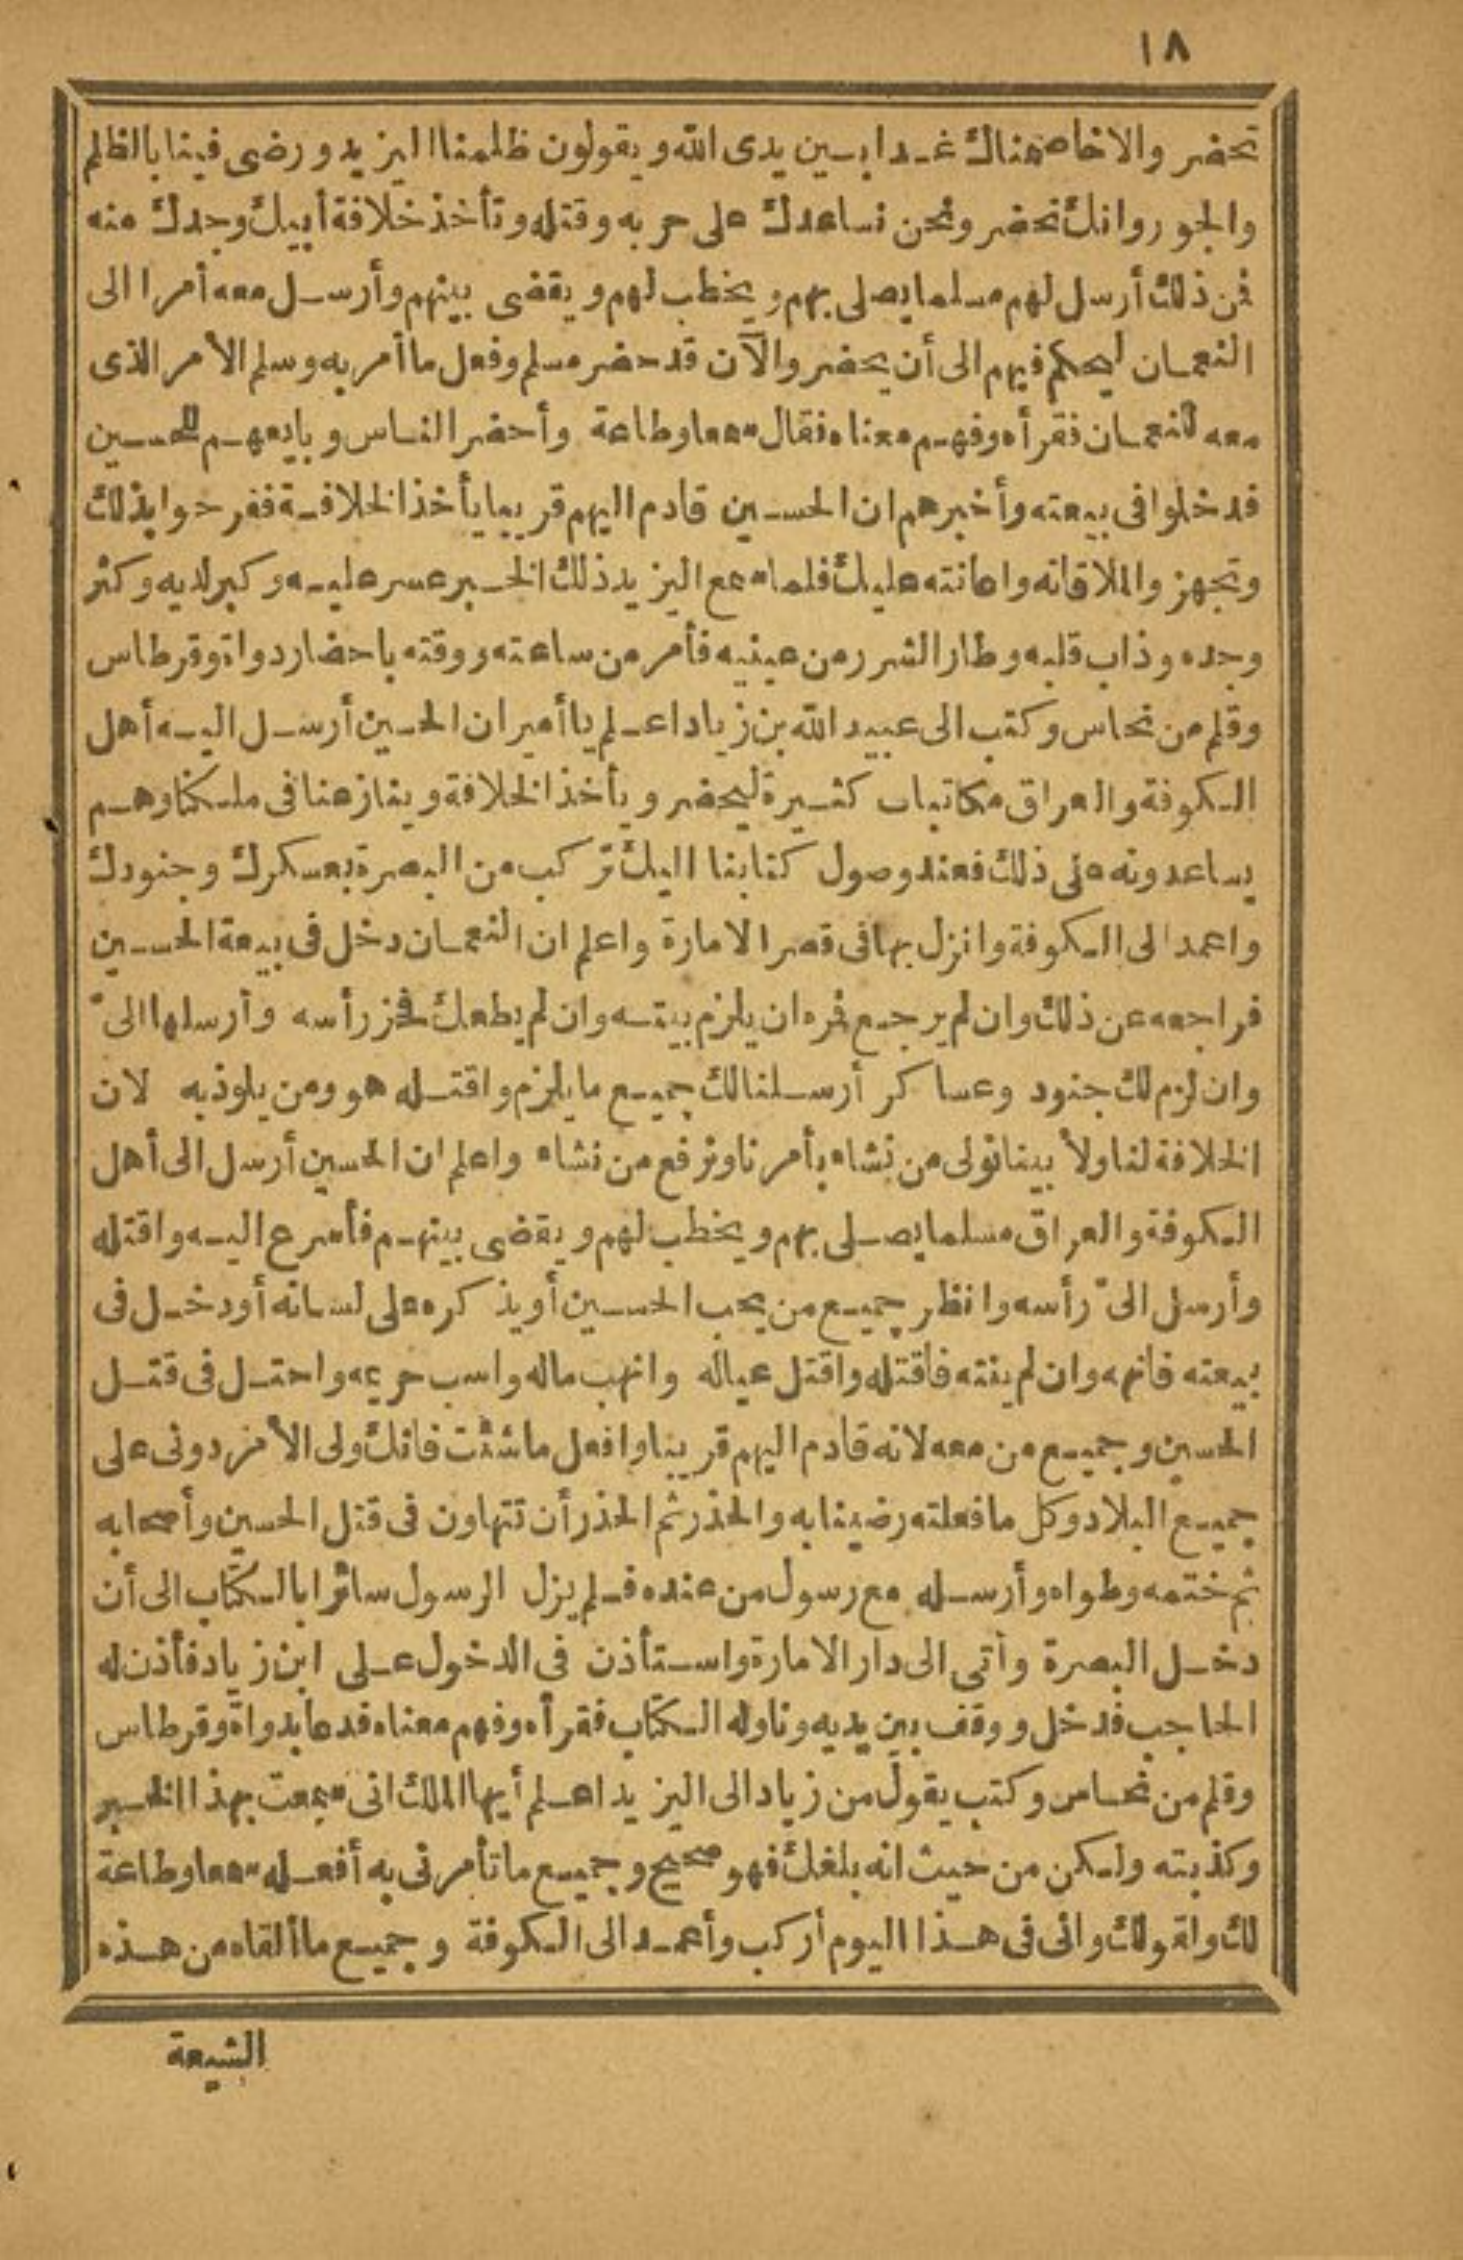 ١٨
تحضر والا خاصمناك غدا بين يدى الله ويقولون ظلمنا اليزيد ورضى فينا بالظلم
والجور وانك تحضر ونحن نساعدك على حربه وقتله وتأخذ خلافة أبيك وجدك منه
فمن ذلك أرسل لهم مسلما يصلى بهم ويخطب لهم ويقضى بينهم وأرسل معه أمرا الى
النعمان ليحكم فيهم الى أن يحضر والآن قد حضر مسلم وفعل ما أمر به وسلم الأمر الذى
معه للنعمان فقرأه وفهم معناه فقال سمعا وطاعة وأحضر الناس وبايعهم للحسين
فدخلوا فى بيعته وأخبرهم ان الحسين قادم اليهم قريبا يأخذ الخلافة ففرحوا بذلك
وتجهزوا لملاقاته واعانته عليك فلما سمع اليزيد ذلك الخبر عسر عليه وكبر لديه وكثر
وجده وذاب قلبه وطار الشرر من عينيه فأمر من ساعته ووقته باحضار دواة وقرطاس
وقلم من نحاس وكتب الى عبيد الله بن زياد اعلم يا أمير ان الحسين أرسل اليه أهل
الكوفة والعراق مكاتبات كثيرة ليحضر ويأخذ الخلافة وينازعنا فى ملكنا وهم
يساعدونه على ذلك فعند وصول كتابنا اليك تركب من البصرة بعسكرك وجنودك
واعمد الى الكوفة وانزل بها فى قصر الامارة واعلم ان النعمان دخل فى بيعة الحسين
فراجعه عن ذلك وان لم يرجع فمره ان يلزم بيته وان لم يطعك فحز رأسه وأرسلها الىّ
وان لزم لك جنود وعساكر أرسلنا لك جميع ما يلزم واقتله هو ومن يلوذ به لان
الخلافة لنا ولأبينا نولى من نشاء بأمرنا ونرفع من نشاء واعلم ان الحسين أرسل الى أهل
الكوفة والعراق مسلما يصلى بهم ويخطب لهم ويقضى بينهم فأسرع اليه واقتله
وأرسل الىّ رأسه وانظر جميع من يحب الحسين أو يذكره على لسانه أو دخل فى
بيعته فانهه وان لم ينته فاقتله واقتل عياله وانهب ماله واسب حريمه واحتل فى قتل
الحسين وجميع من معه لانه قادم اليهم قريبا وافعل ما شئت فانك ولى الأمر دونى على
جميع البلاد وكل ما فعلته رضينا به والحذر ثم الحذر أن تتهاون فى قتل الحسين وأصحابه
ثم ختمه وطواه وأرسله مع رسول من عنده فلم يزل الرسول سائرا بالكتاب الى أن
دخل البصرة وأتى الى دار الامارة واستأذن فى الدخول على ابن زياد فأذن له
الحاجب فدخل ووقف بين يديه وناوله الكتاب فقرأه وفهم معناه فدعا بدواة وقرطاس
وقلم من نحاس وكتب يقول من زياد الى اليزيد اعلم أيها الملك انى سمعت بهذا الخبر
وكذبته ولكن من حيث انه بلغك فهو صحيح وجميع ما تأمرنى به أفعله سمعا وطاعة
لك ولقولك وانى فى هذا اليوم أركب وأعمد الى الكوفة وجميع ما ألقاه من هذه
الشيعة